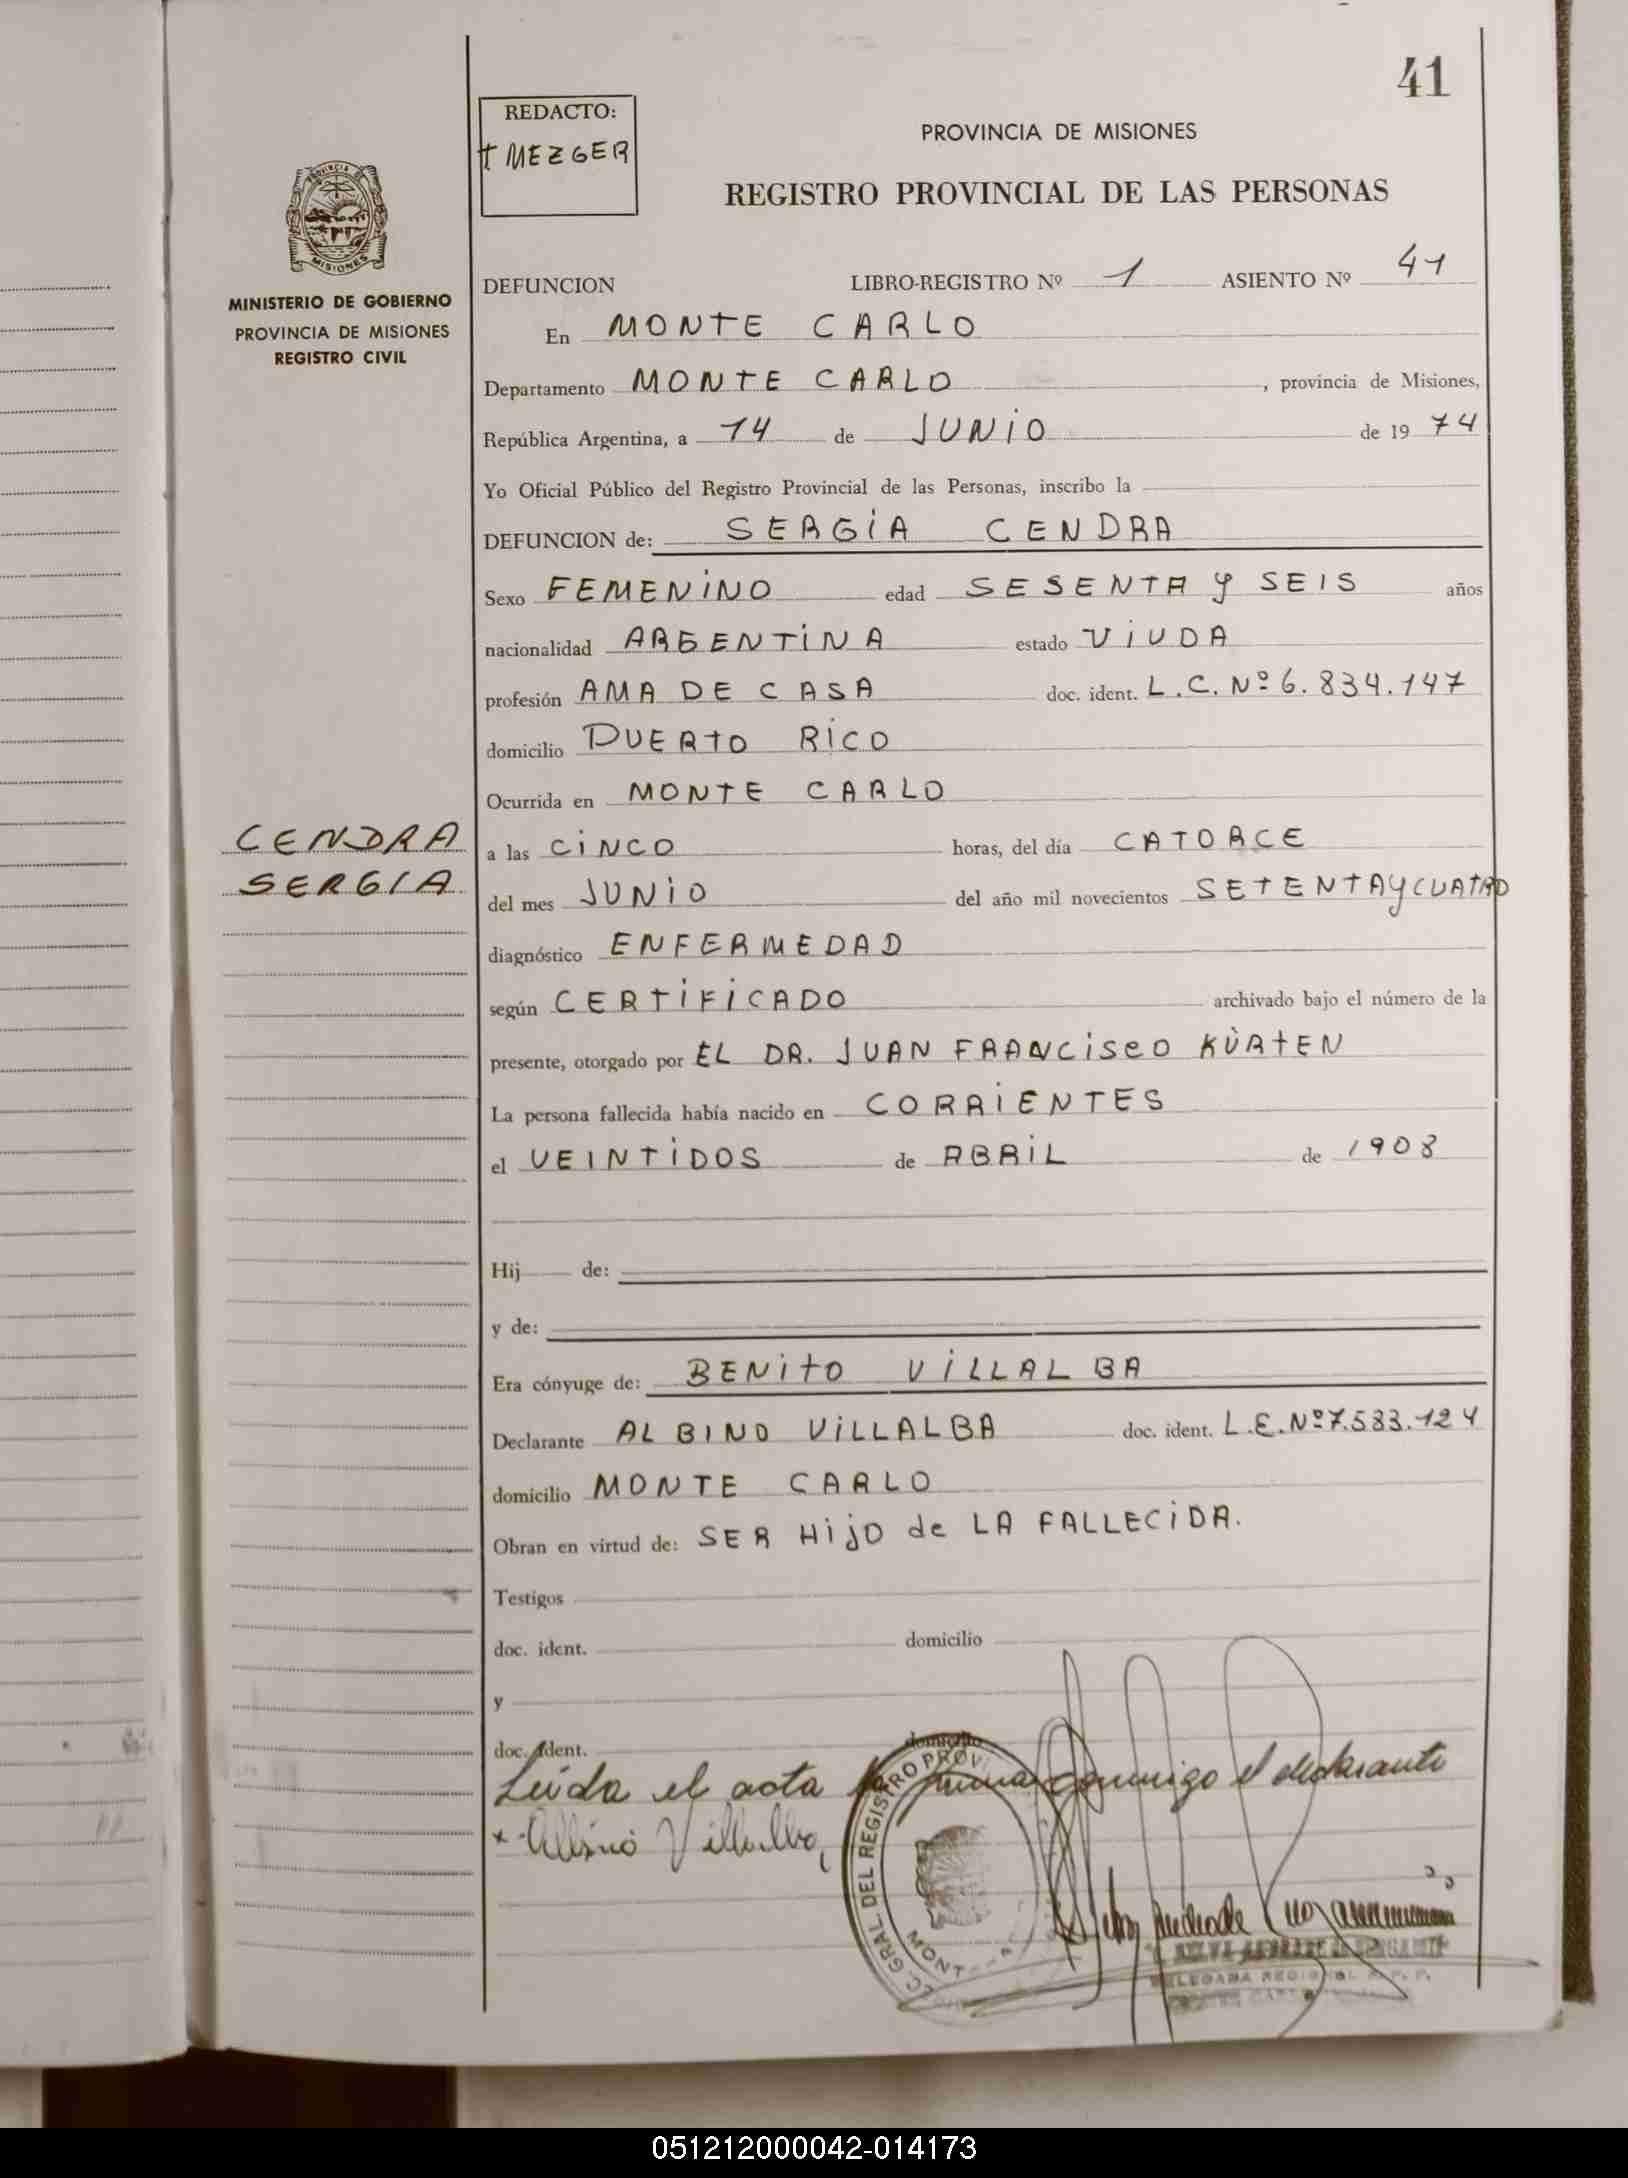 41
REDACTO:
MEZGER
PROVINCIA DE MISIONES
REGISTRO PROVINCIAL DE LAS PERSONAS
MISIONES
MINISTERIO DE GOBIERNO
PROVINCIA DE MISIONES
REGISTRO CIVIL
DEFUNCION LIBRO-REGISTRO Nº 1 ASIENTO Nº 41
En MONTE CARLO
Departamento MONTE CARLO, provincia de Misiones,
República Argentina, a 14 de JUNIO de 1974
Yo Oficial Público del Registro Provincial de las Personas, inscribo la
DEFUNCION de: SERGIA CENDRA
Sexo FEMENINO edad SESENTA y SEIS años
nacionalidad ARGENTINA estado VIUDA
profesión AMA DE CASA doc. ident. L.C. Nº 6.834.147
domicilio PUERTO RICO
Ocurrida en MONTE CARLO
CENDRA
SERGIA
a las CINCO horas, del día CATORCE
del mes JUNIO del año mil novecientos SETENTA y CUATRO
diagnóstico ENFERMEDAD
según CERTIFICADO archivado bajo el número de la
presente, otorgado por EL DR. JUAN FRANCISCO KÜRTEN
La persona fallecida había nacido en CORRIENTES
el VEINTIDOS de ABRIL de 1908
Hij de:
y de:
Era cónyuge de: BENITO VILLALBA
Declarante ALBINO VILLALBA doc. ident. L.E. Nº 7.533.124
domicilio MONTE CARLO
Obran en virtud de: SER HIJO de LA FALLECIDA.
Testigos
doc. ident. domicilio
y
doc. ident. domicilio
Leida el acta la firma conmigo el declarante
Albino Villalba
GRAL. DEL REGISTRO PROV
MONT
051212000042-014173